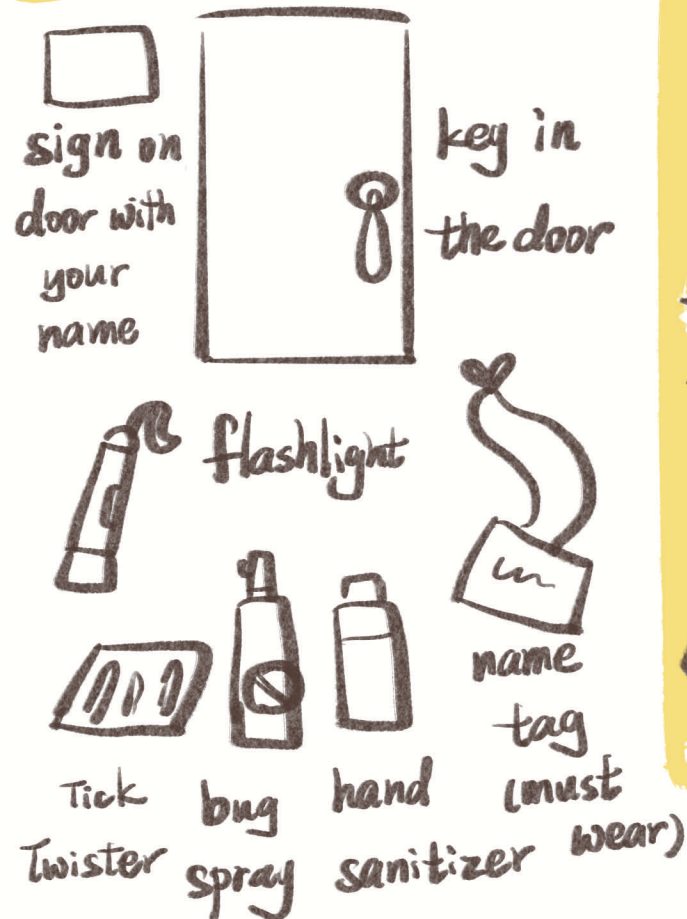 sign on
door with
your
name
key in
the door
flashlight
name
tag
(must
wear)
Tick
Twister
bug
spray
hand
sanitizer